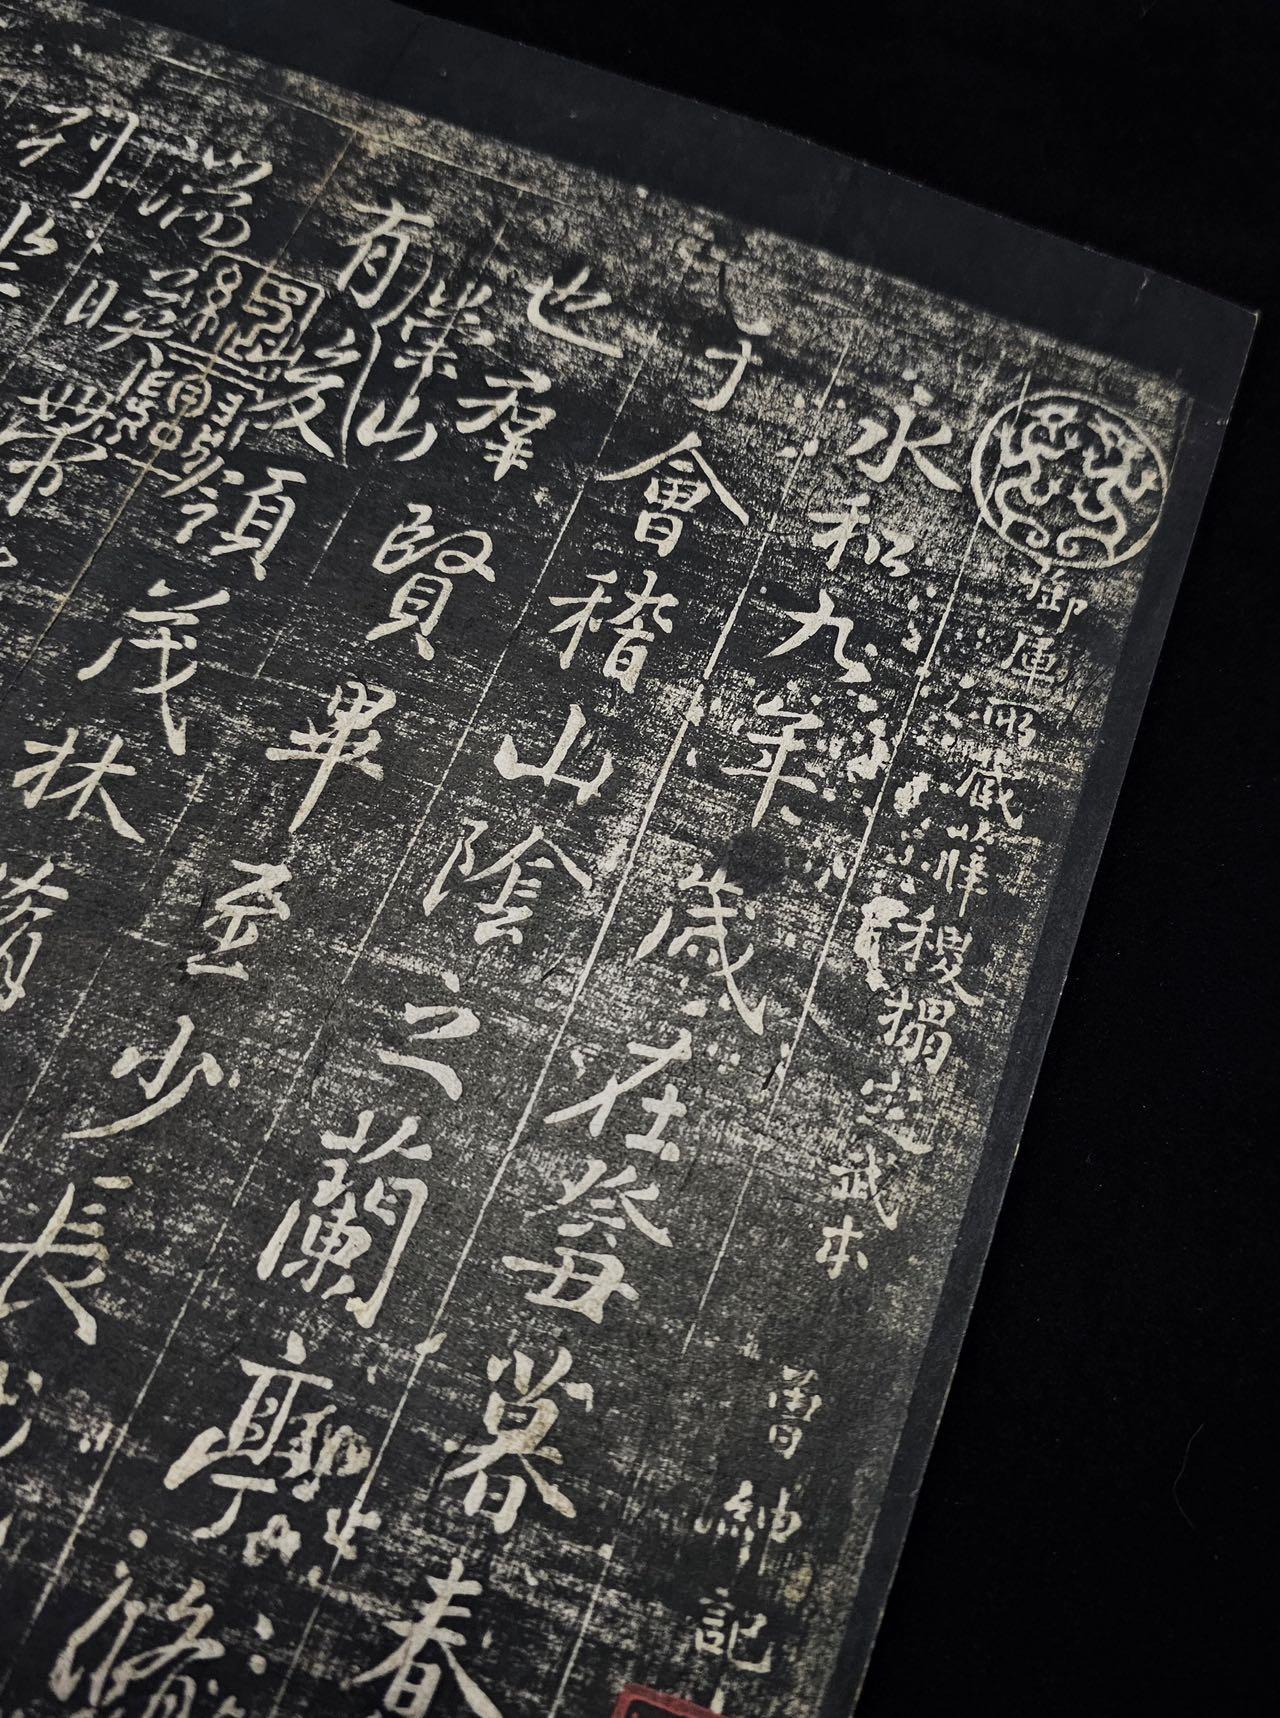 御庫所藏薛稷搨定武本
曾紳記
永和九年歲在癸丑暮春
于會稽山陰之蘭亭脩
也羣賢畢至少長
崇山
有峻領茂林脩
湍暎帶
列坐